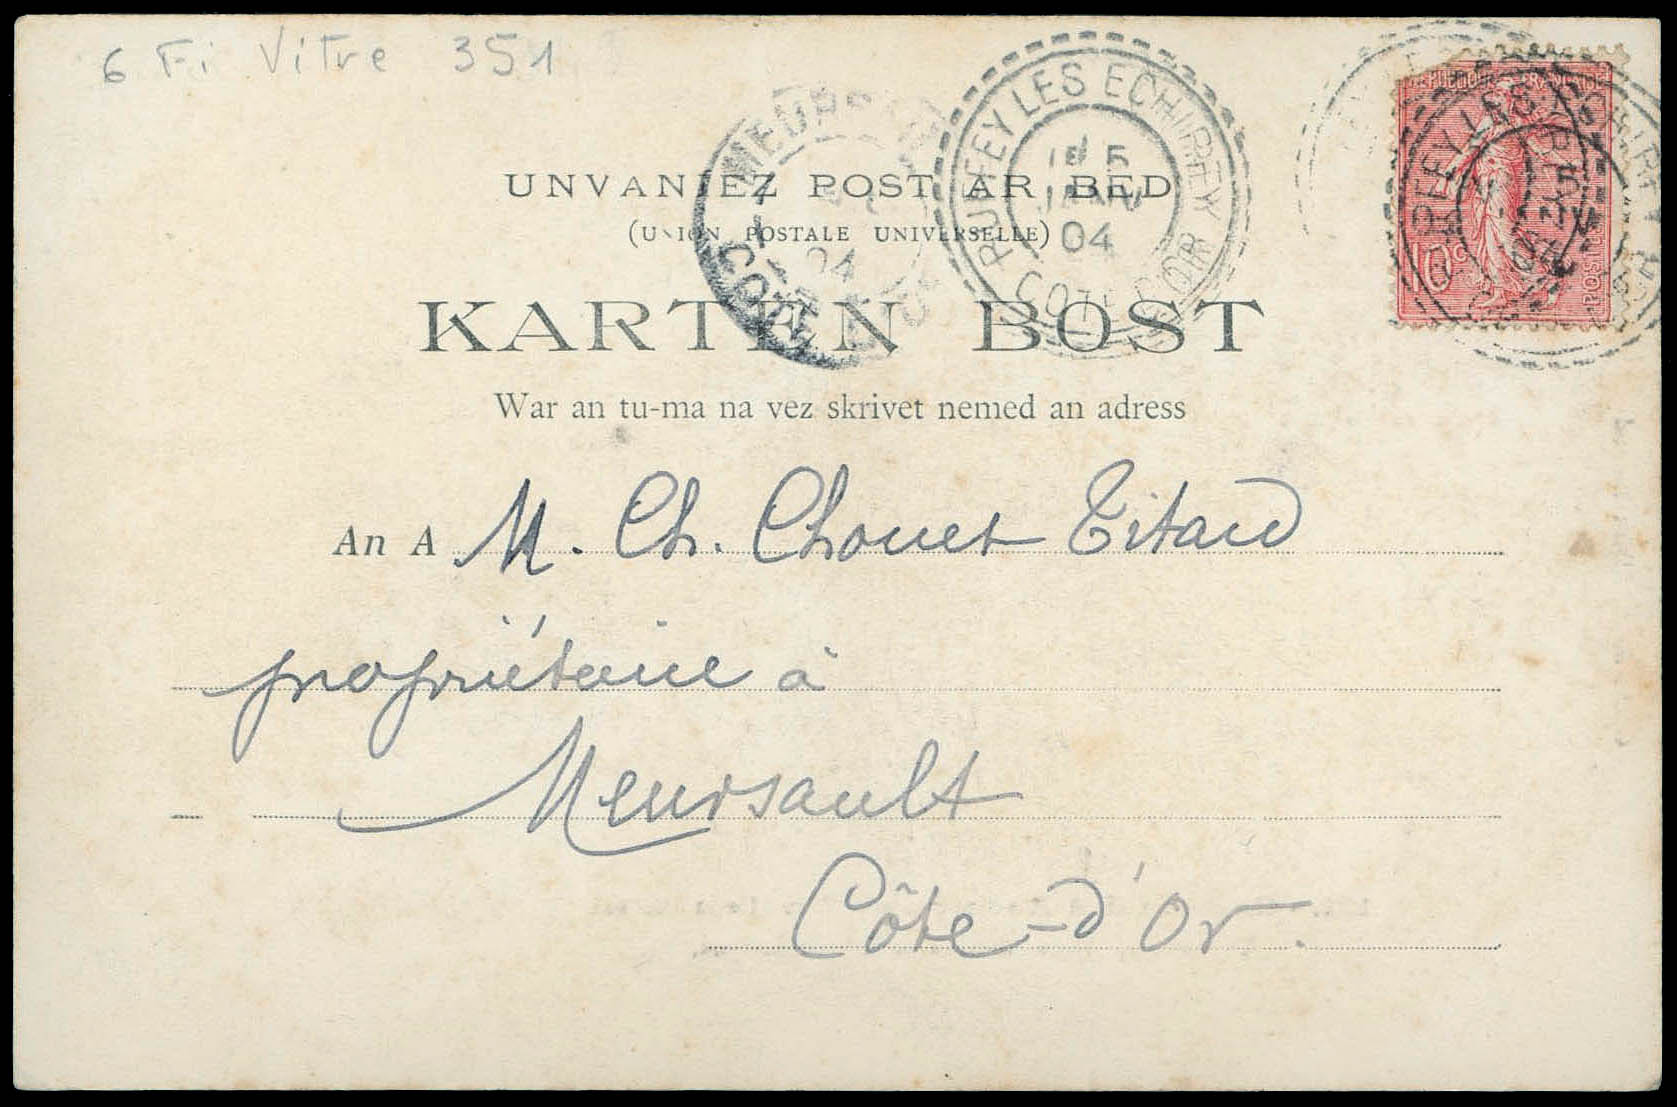 6 Fi Vitre 351
RUFFEY LES ECHIREY
5
JANV
04
COTE D'OR
REPUBLIQUE FRANCAISE
10c
POSTES
MEURSAULT
04
COTE D'OR
UNVANIEZ POST AR BED
(UNION POSTALE UNIVERSELLE)
KARTEN BOST
War an tu-ma na vez skrivet nemed an adress
An A M. Ch. Chouet Titard
propriétaire à
Meursault
Côte-d'Or.